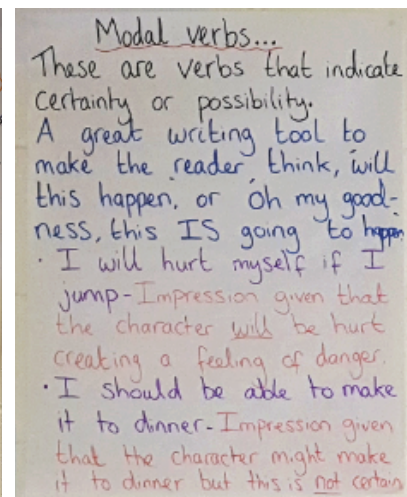 Modal verbs...
These are verbs that indicate
certainty or possibility.
A great writing tool to
make the reader think, will
this happen, or oh my good-
ness, this IS going to happen
· I will hurt myself if I
jump - Impression given that
the character will be hurt
creating a feeling of danger.
· I should be able to make
it to dinner - Impression given
that the character might make
it to dinner but this is not certain